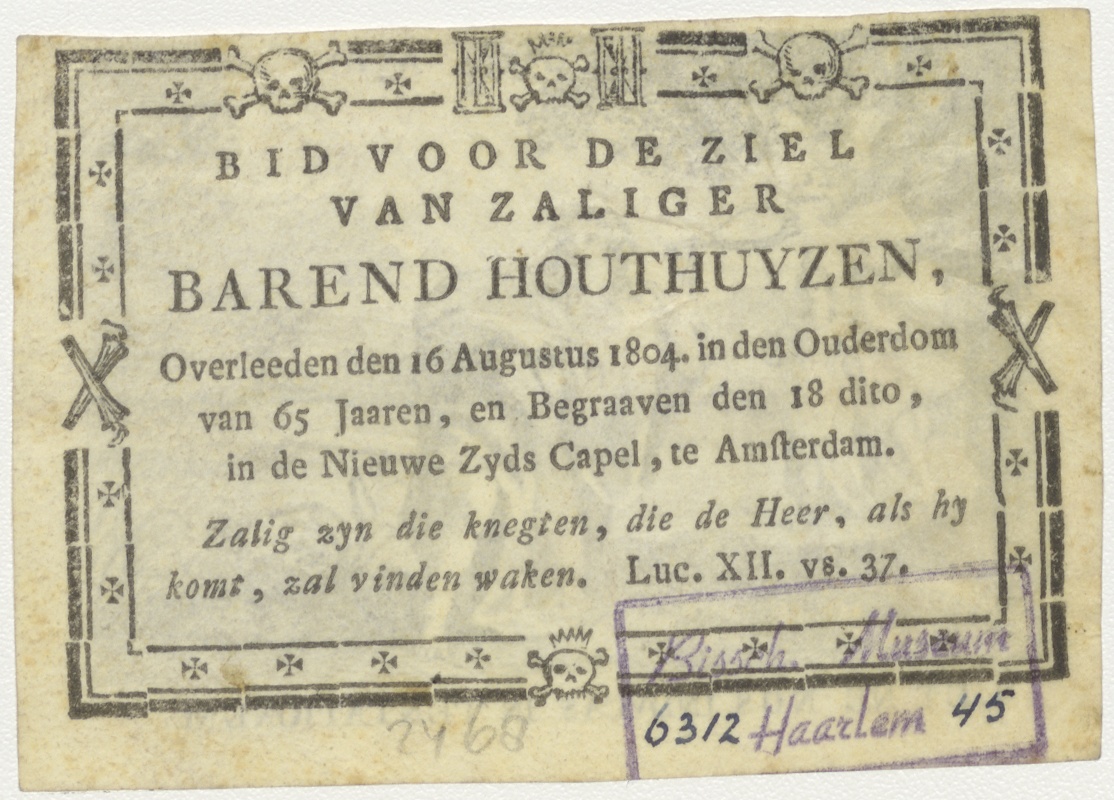 BID VOOR DE ZIEL
VAN ZALIGER
BAREND HOUTHUYZEN,
Overleeden den 16 Augustus 1804. in den Ouderdom
van 65 Jaaren, en Begraaven den 18 dito,
in de Nieuwe Zyds Capel, te Amſterdam.
Zalig zyn die knegten, die de Heer, als hy
komt, zal vinden waken. Luc. XII. vs. 37.
Bissch. Museum
6312 Haarlem 45
2468